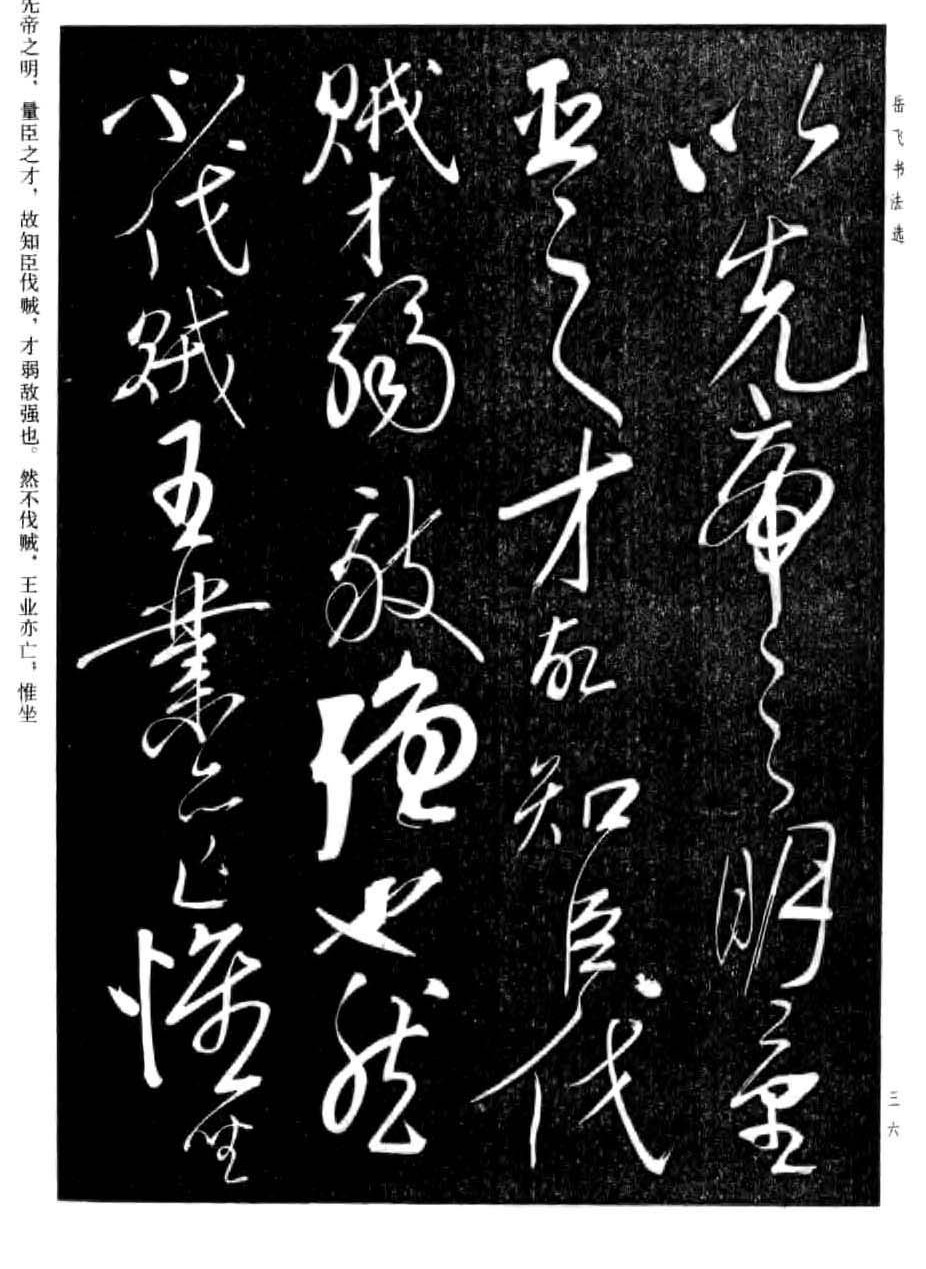 岳飞书法选
以先帝之明量
臣之才故知臣伐
贼才弱敌强也然
不伐贼王业亦亡惟坐
三六
先帝之明，量臣之才，故知臣伐贼，才弱敌强也。然不伐贼，王业亦亡；惟坐